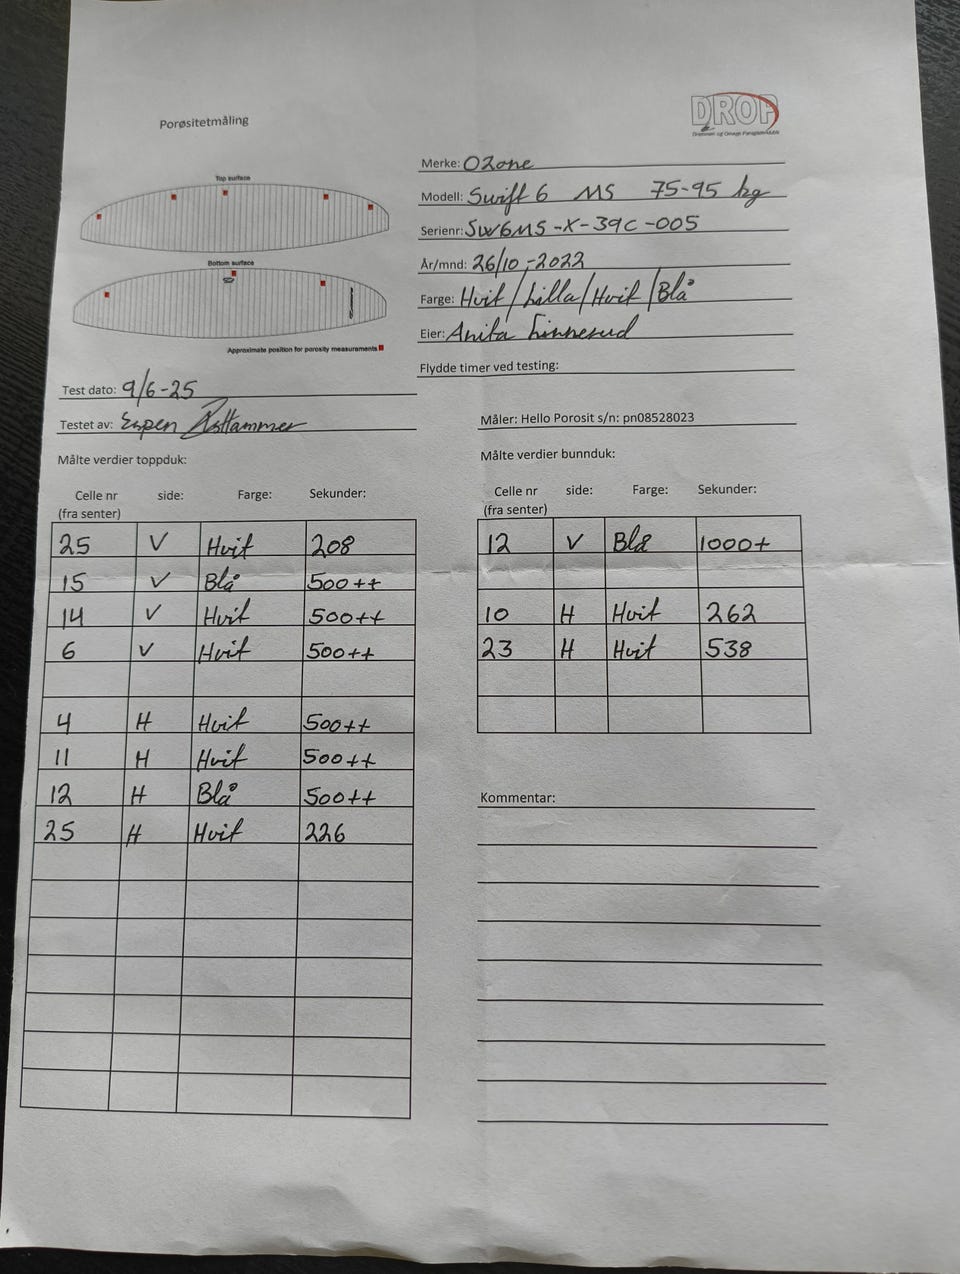 Porøsitetmåling
DROP
Drammen og Omegn Paragliderklubb
Top surface
Bottom surface
Approximate position for porosity measurements
Merke: OZone
Modell: Swift 6 MS 75-95 kg
Serienr: SW6MS-X-39C-005
År/mnd: 26/10-2022
Farge: Hvit/Lilla/Hvit/Blå
Eier: Anita Linnerud
Flydde timer ved testing:
Test dato: 9/6-25
Testet av: Espen
Måler: Hello Porosit s/n: pn08528023
Målte verdier toppduk:
Celle nr side: Farge: Sekunder:
(fra senter)
25 V Hvit 208
15 V Blå 500++
14 V Hvit 500++
6 V Hvit 500++
4 H Hvit 500++
11 H Hvit 500++
12 H Blå 500++
25 H Hvit 226
Målte verdier bunnduk:
Celle nr side: Farge: Sekunder:
(fra senter)
12 V Blå 1000+
10 H Hvit 262
23 H Hvit 538
Kommentar: